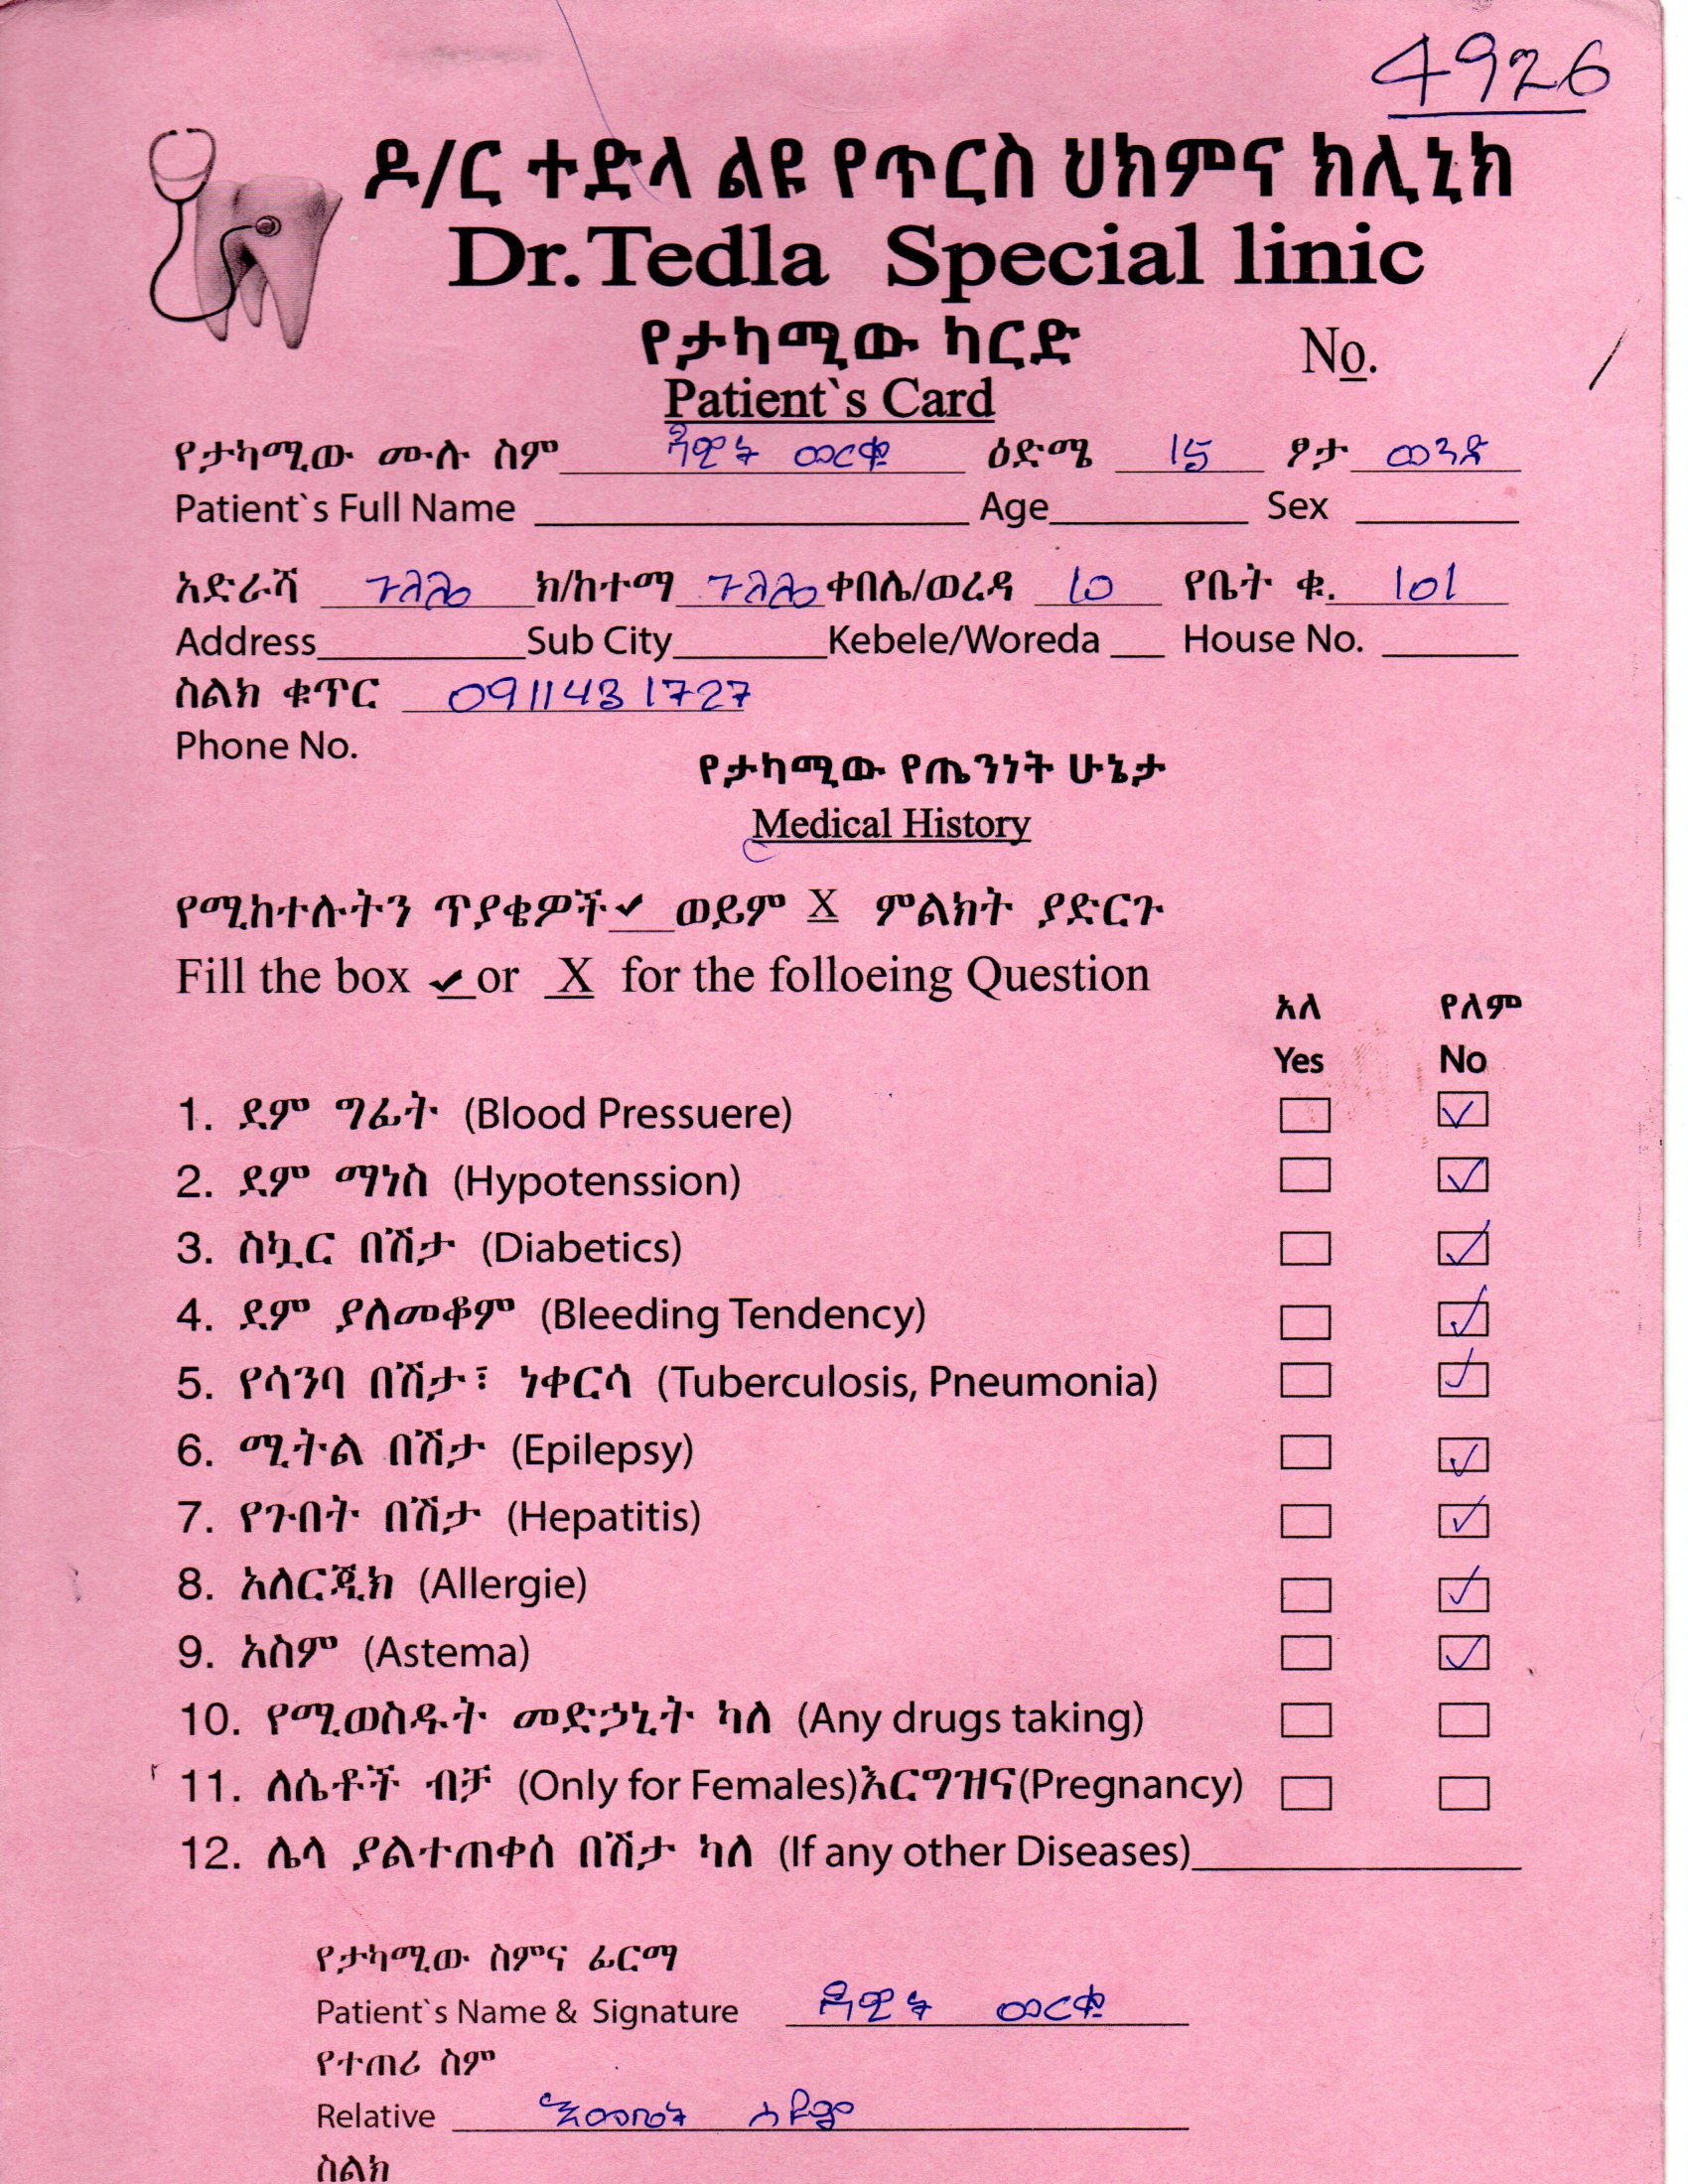 4926
ዶ/ር ተድላ ልዩ የጥርስ ህክምና ክሊኒክ
Dr.Tedla Special linic
የታካሚው ካርድ
No.
Patient`s Card
የታካሚው ሙሉ ስም ዳዊት ወርቁ ዕድሜ 15 ፆታ ወንድ
Patient`s Full Name Age Sex
አድራሻ ጉለሌ ክ/ከተማ ጉለሌ ቀበሌ/ወረዳ 10 የቤት ቁ. 101
Address Sub City Kebele/Woreda House No.
ስልክ ቁጥር 0911431727
Phone No.
የታካሚው የጤንነት ሁኔታ
Medical History
የሚከተሉትን ጥያቄዎች ✓ ወይም X ምልክት ያድርጉ
Fill the box ✓ or X for the folloeing Question
አለ የለም
Yes No
1. ደም ግፊት (Blood Pressuere) ✓
2. ደም ማነስ (Hypotenssion) ✓
3. ስኳር በሽታ (Diabetics) ✓
4. ደም ያለመቆም (Bleeding Tendency) ✓
5. የሳንባ በሽታ፣ ነቀርሳ (Tuberculosis, Pneumonia) ✓
6. ሚትል በሽታ (Epilepsy) ✓
7. የጉበት በሽታ (Hepatitis) ✓
8. አለርጂክ (Allergie) ✓
9. አስም (Astema) ✓
10. የሚወስዱት መድኃኒት ካለ (Any drugs taking)
11. ለሴቶች ብቻ (Only for Females)እርግዝና(Pregnancy)
12. ሌላ ያልተጠቀሰ በሽታ ካለ (If any other Diseases)
የታካሚው ስምና ፊርማ
Patient`s Name & Signature ዳዊት ወርቁ
የተጠሪ ስም
Relative
ስልክ